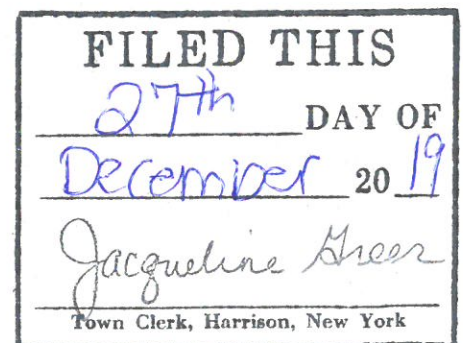 FILED THIS
27th DAY OF
December 20 19
Jacqueline Greer
Town Clerk, Harrison, New York